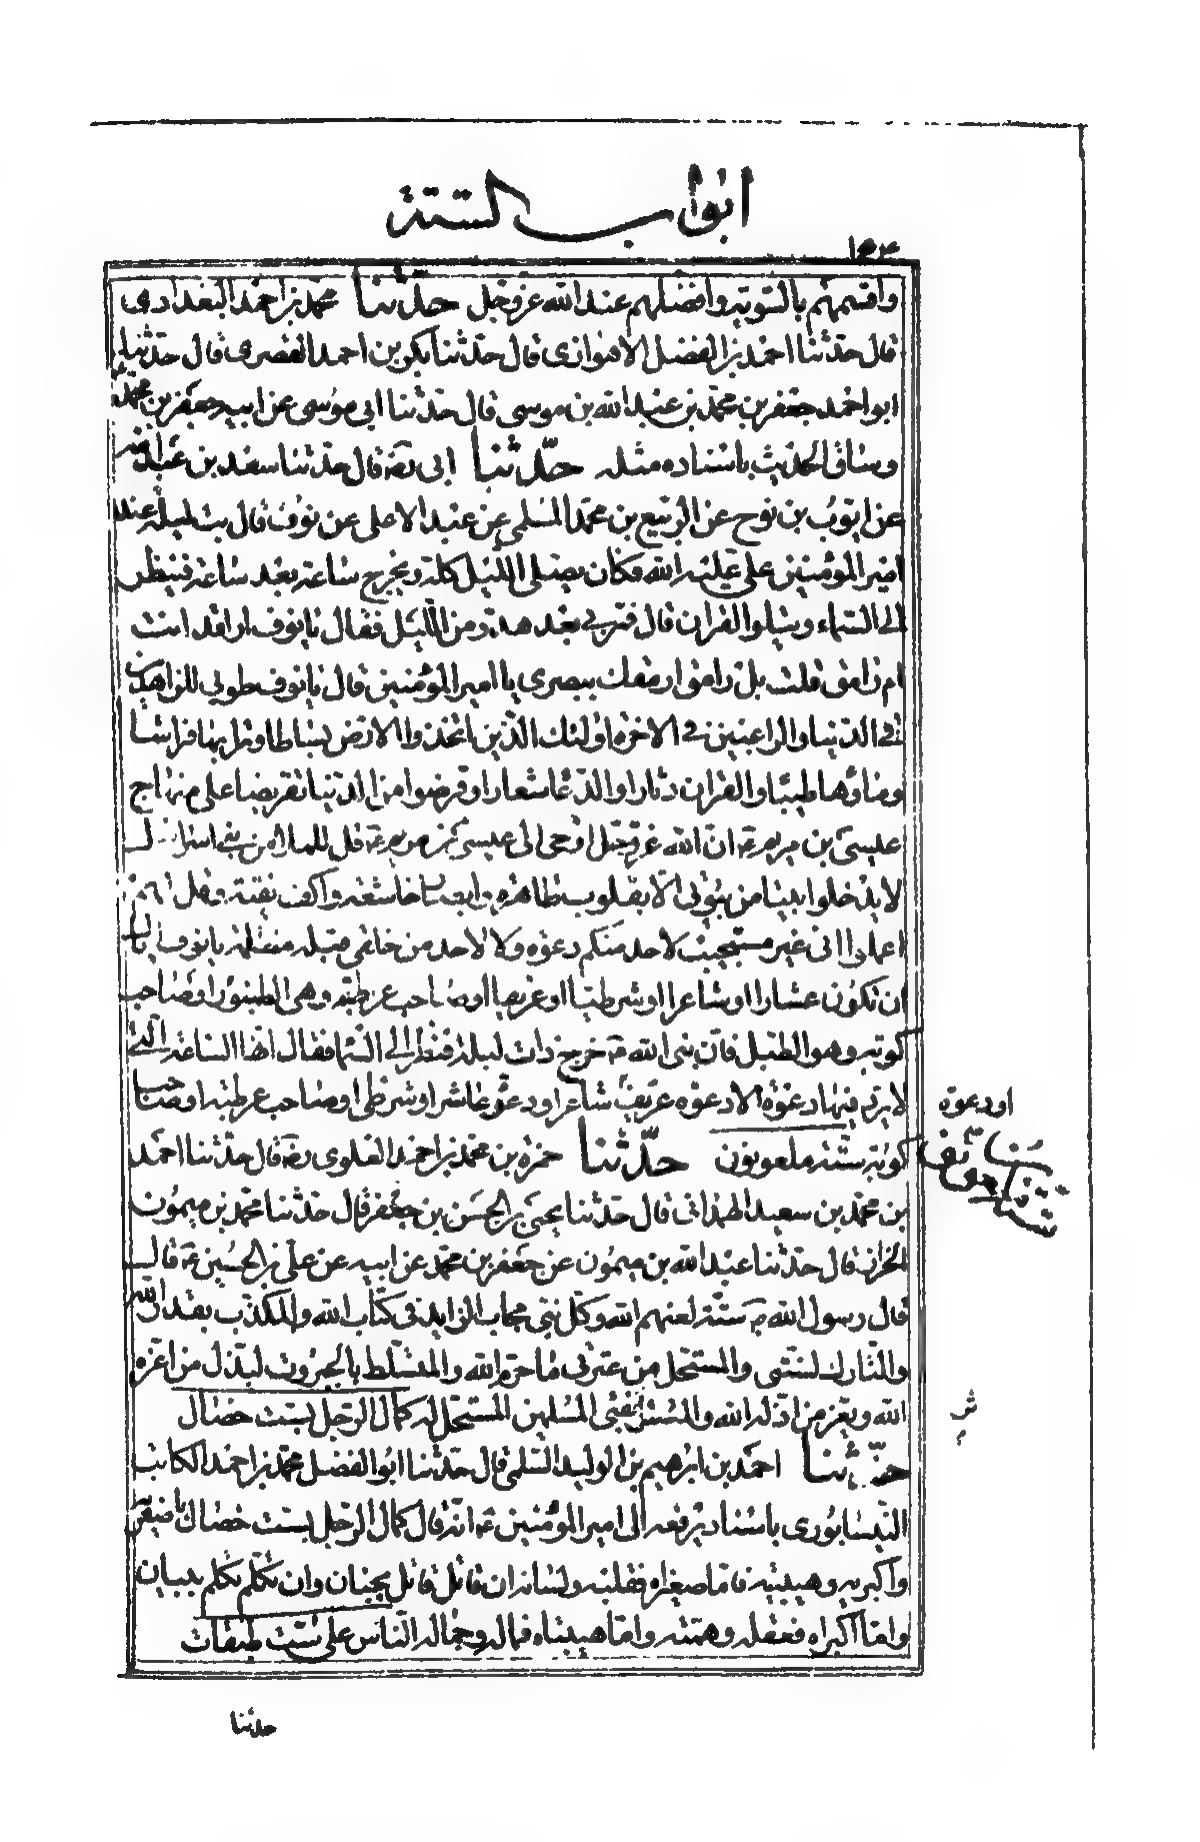 ابواب الستة
واقسمهم بالسوية وافضلهم عند الله عز وجل حدثنا محمد بن احمد البغدادى
قال حدثنا احمد بن الفضل الاهوازى قال حدثنا بكر بن احمد القصرى قال حدثنا
ابو احمد جعفر بن محمد بن عبد الله بن موسى قال حدثنا ابى موسى عن ابيه جعفر بن محمد
وساق الحديث باسناده مثله حدثنا ابى ره قال حدثنا سعد بن عبد الله
عن ايوب بن نوح عن الربيع بن محمد المسلى عن عبد الاعلى عن نوف قال بت ليلة عند
امير المؤمنين على عليه الله فكان يصلى الليل كله ويخرج ساعة بعد ساعة فينظر
الى السماء ويتلو القران قال فمر بى بعد هدة من الليل فقال يا نوف اراقد انت
ام رامق قلت بل رامق ارمقك ببصرى يا امير المؤمنين قال يا نوف طوبى للزاهدين
فى الدنيا والراغبين فى الاخرة اولئك الذين اتخذوا الارض بساطا وترابها فراشا
وماؤها طيبا والقران دثارا والدعا شعارا وقرضوا من الدنيا تقريضا على منهاج
عيسى بن مريم ع ان الله عز وجل اوحى الى عيسى بن مريم ع قل للملاء من بنى اسرائيل
لا يدخلوا بيتا من بيوتى الا بقلوب طاهرة وابصار خاشعة واكف نقية وقل لهم
اعلموا انى غير مستجيب لاحد منكم دعوة ولا لاحد من خلقى قبله مظلمة يا نوف اياك
ان تكون عشارا او شاعرا او شرطيا او عريفا او صاحب عرطبة وهى الطنبور او صاحب
كوبة وهو الطبل فان نبى الله ص خرج ذات ليلة فنظر الى السماء فقال انها الساعة التى
لا ترد فيها دعوة الا دعوة عريف شاعر او دعوة عاشر او شرطى او صاحب عرطبة او صاحب
او دعوة
كوبة ستة ملعونون حدثنا حمزة بن محمد بن احمد العلوى ره قال حدثنا احمد
بن محمد بن سعيد الهمدانى قال حدثنا يحيى بن الحسن بن جعفر قال حدثنا محمد بن ميمون
الخزاز قال حدثنا عبد الله بن ميمون عن جعفر بن محمد عن ابيه عن على بن الحسين ع قال
قال رسول الله ص ستة لعنهم الله وكل نبى مجاب الزايد فى كتاب الله والمكذب بقدر الله
والتارك لسنتى والمستحل من عترتى ما حرم الله والمتسلط بالجبروت ليذل من اعزه
الله ويعز من اذله الله والمستاثر بفئ المسلمين المستحل له كمال الرجل بست خصال
حدثنا احمد بن ابرهيم بن الوليد السلمى قال حدثنا ابو الفضل محمد بن احمد الكاتب
النيسابورى باسناده يرفعه الى امير المؤمنين ع انه قال كمال الرجل بست خصال باصغريه
واكبريه وهيبتيه فاما صغراه فقلبه ولسانه ان قاتل قاتل بجنان وان تكلم تكلم ببيان
واما اكبراه فعقله وهمته واما هيبتاه فماله وجماله الناس على ست طبقات
حدثنا